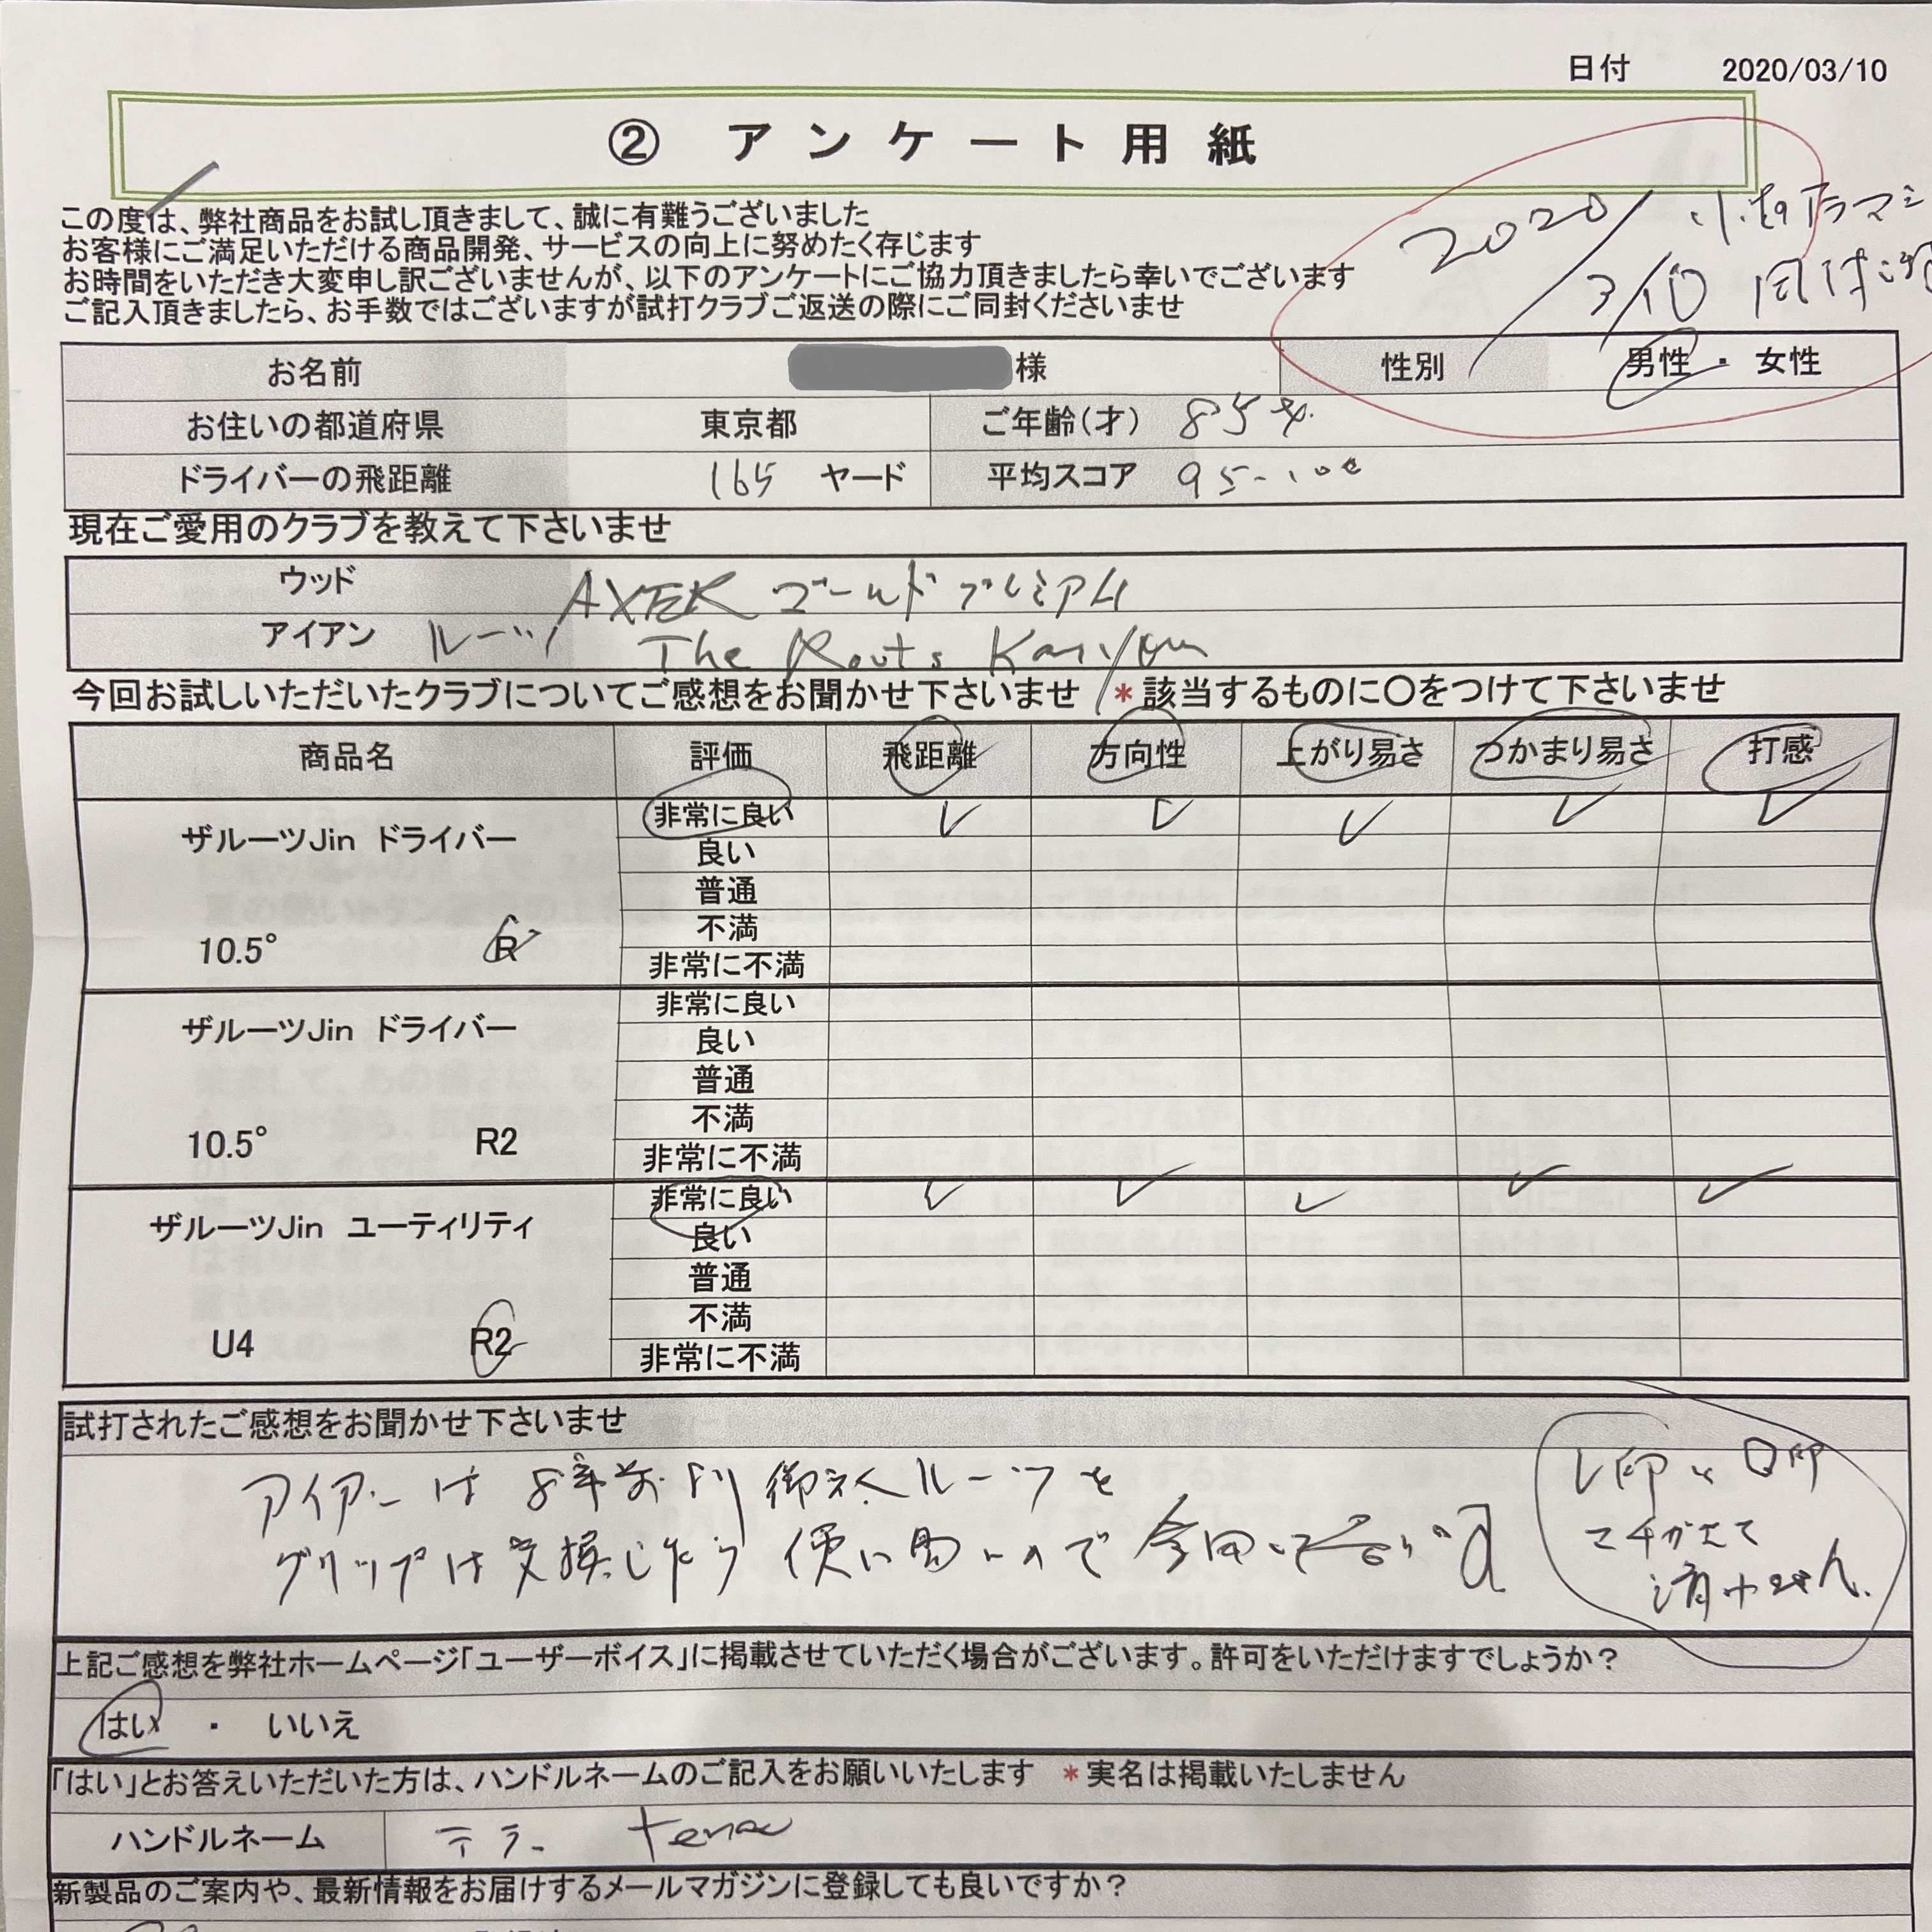 日付 2020/03/10
② アンケート用紙
この度は、弊社商品をお試し頂きまして、誠に有難うございました
お客様にご満足いただける商品開発、サービスの向上に努めたく存じます
お時間をいただき大変申し訳ございませんが、以下のアンケートにご協力頂きましたら幸いでございます
ご記入頂きましたら、お手数ではございますが試打クラブご返送の際にご同封くださいませ
2020
3/10
お名前 様 性別 男性 ・ 女性
お住いの都道府県 東京都 ご年齢(才) 85才
ドライバーの飛距離 165 ヤード 平均スコア 95-100
現在ご愛用のクラブを教えて下さいませ
ウッド ゴールドプレミアム
アイアン ルーツ The Roots
今回お試しいただいたクラブについてご感想をお聞かせ下さいませ *該当するものに〇をつけて下さいませ
商品名 評価 飛距離 方向性 上がり易さ つかまり易さ 打感
ザルーツJin ドライバー 非常に良い ✓ ✓ ✓ ✓ ✓
良い
普通
10.5° R 不満
非常に不満
ザルーツJin ドライバー 非常に良い
良い
普通
10.5° R2 不満
非常に不満
ザルーツJin ユーティリティ 非常に良い ✓ ✓ ✓ ✓ ✓
良い
普通
U4 R2 不満
非常に不満
試打されたご感想をお聞かせ下さいませ
アイアンは8年前より御社ルーツを
グリップは交換したり使い易いので今回
レ印と〇印
マチガエて
済みません。
上記ご感想を弊社ホームページ「ユーザーボイス」に掲載させていただく場合がございます。許可をいただけますでしょうか？
はい ・ いいえ
「はい」とお答えいただいた方は、ハンドルネームのご記入をお願いいたします *実名は掲載いたしません
ハンドルネーム テラー
新製品のご案内や、最新情報をお届けするメールマガジンに登録しても良いですか？